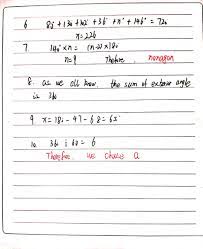 6. 8i + 13i + 10i + 3b + n° + 146° = 720
n = 226
7. 140° × n = (n-2) × 18i
n = 9 Therefore, nonagon
8. as we all know, the sum of exterior angle
is 360
9. x = 18i - 47 - 68 = 6x°
10. 36i ÷ 60 = 6
Therefore, we chose a